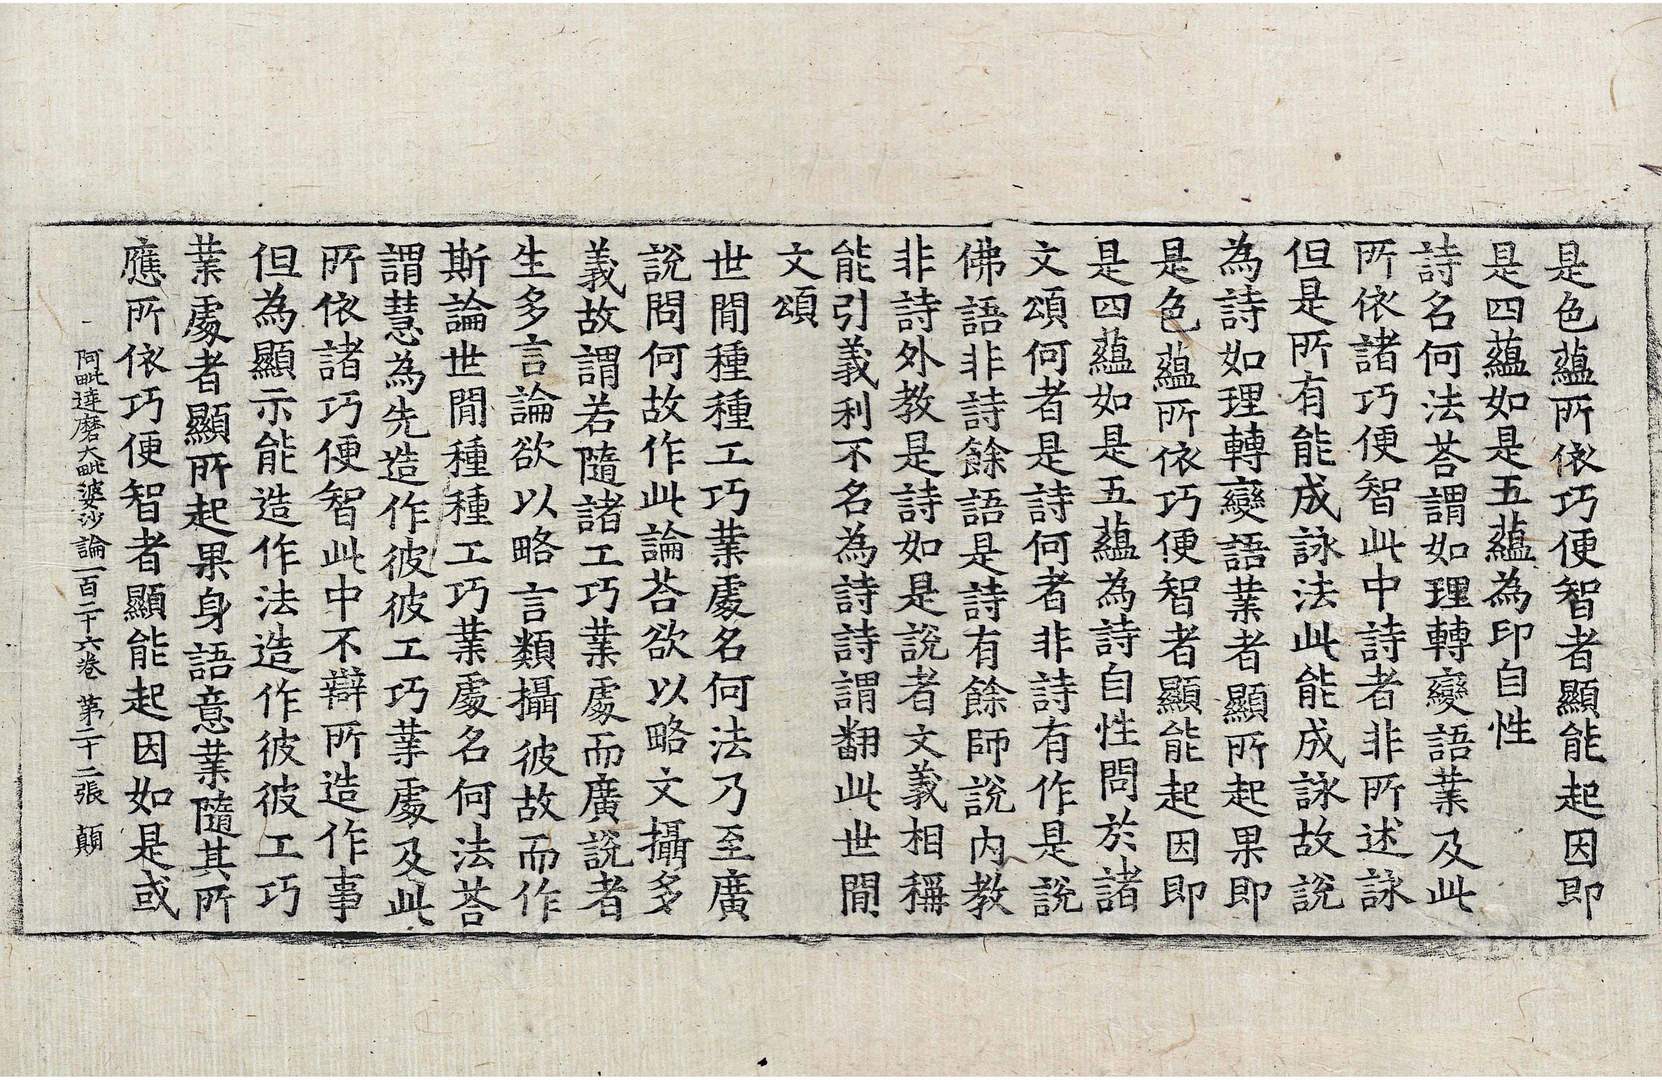 是色蘊所依巧便智者顯能起因即
是四蘊如是五蘊為印自性
詩名何法荅謂如理轉變語業及此
所依諸巧便智此中詩者非所述詠
但是所有能成詠法此能成詠故說
為詩如理轉變語業者顯所起果即
是色蘊所依巧便智者顯能起因即
是四蘊如是五蘊為詩自性問於諸
文頌何者是詩何者非詩有作是說
佛語非詩餘語是詩有餘師說內教
非詩外教是詩如是說者文義相稱
能引義利不名為詩詩謂翻此世間
文頌
世間種種工巧業處名何法乃至廣
說問何故作此論荅欲以略文攝多
義故謂若隨諸工巧業處而廣說者
生多言論欲以略言類攝彼故而作
斯論世間種種工巧業處名何法荅
謂慧為先造作彼彼工巧業處及此
所依諸巧便智此中不辯所造作事
但為顯示能造作法造作彼彼工巧
業處者顯所起果身語意業隨其所
應所依巧便智者顯能起因如是或
阿毗達磨大毗婆沙論一百二十六卷 第二十二張 顛